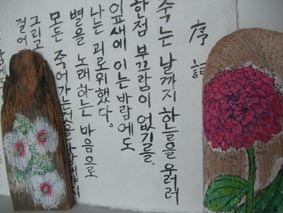 序詩
죽는 날까지 하늘을 우러러
한점 부끄럼이 없기를
잎새에 이는 바람에도
나는 괴로워했다.
별을 노래하는 마음으로
모든 죽어가는것을
그리고
걸어